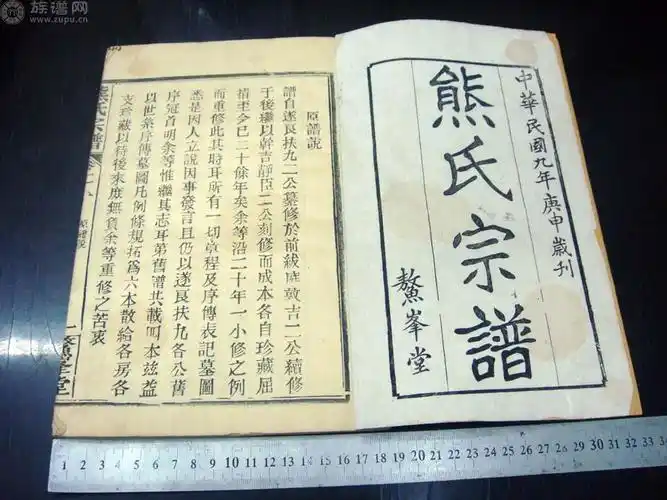 族谱网
www.zupu.cn
中華民國九年庚申歲刊
熊氏宗譜
鰲峯堂
原譜說
譜自遂良扶九二公纂修於前紱庭敦吉二公續修
于後繼以幹吉靜臣二公刻修而成本各自珍藏屈
指至今已二十餘年矣余等沿二十年一小修之例
而重修此其時耳所有一切章程及序傳表記墓圖
悉是因人立說因事發言且仍以遂良扶九各公舊
序冠首明余等惟繼其志耳第舊譜共載四本茲益
以世系序傳墓圖凡例條規拓爲六本散給各房各
支珍藏以待後來庶無負余等重修之苦衷
熊氏宗譜
原譜說
1 2 3 4 5 6 7 8 9 10 11 12 13 14 15 16 17 18 19 20 21 22 23 24 25 26 27 28 29 30 31 32 33 34